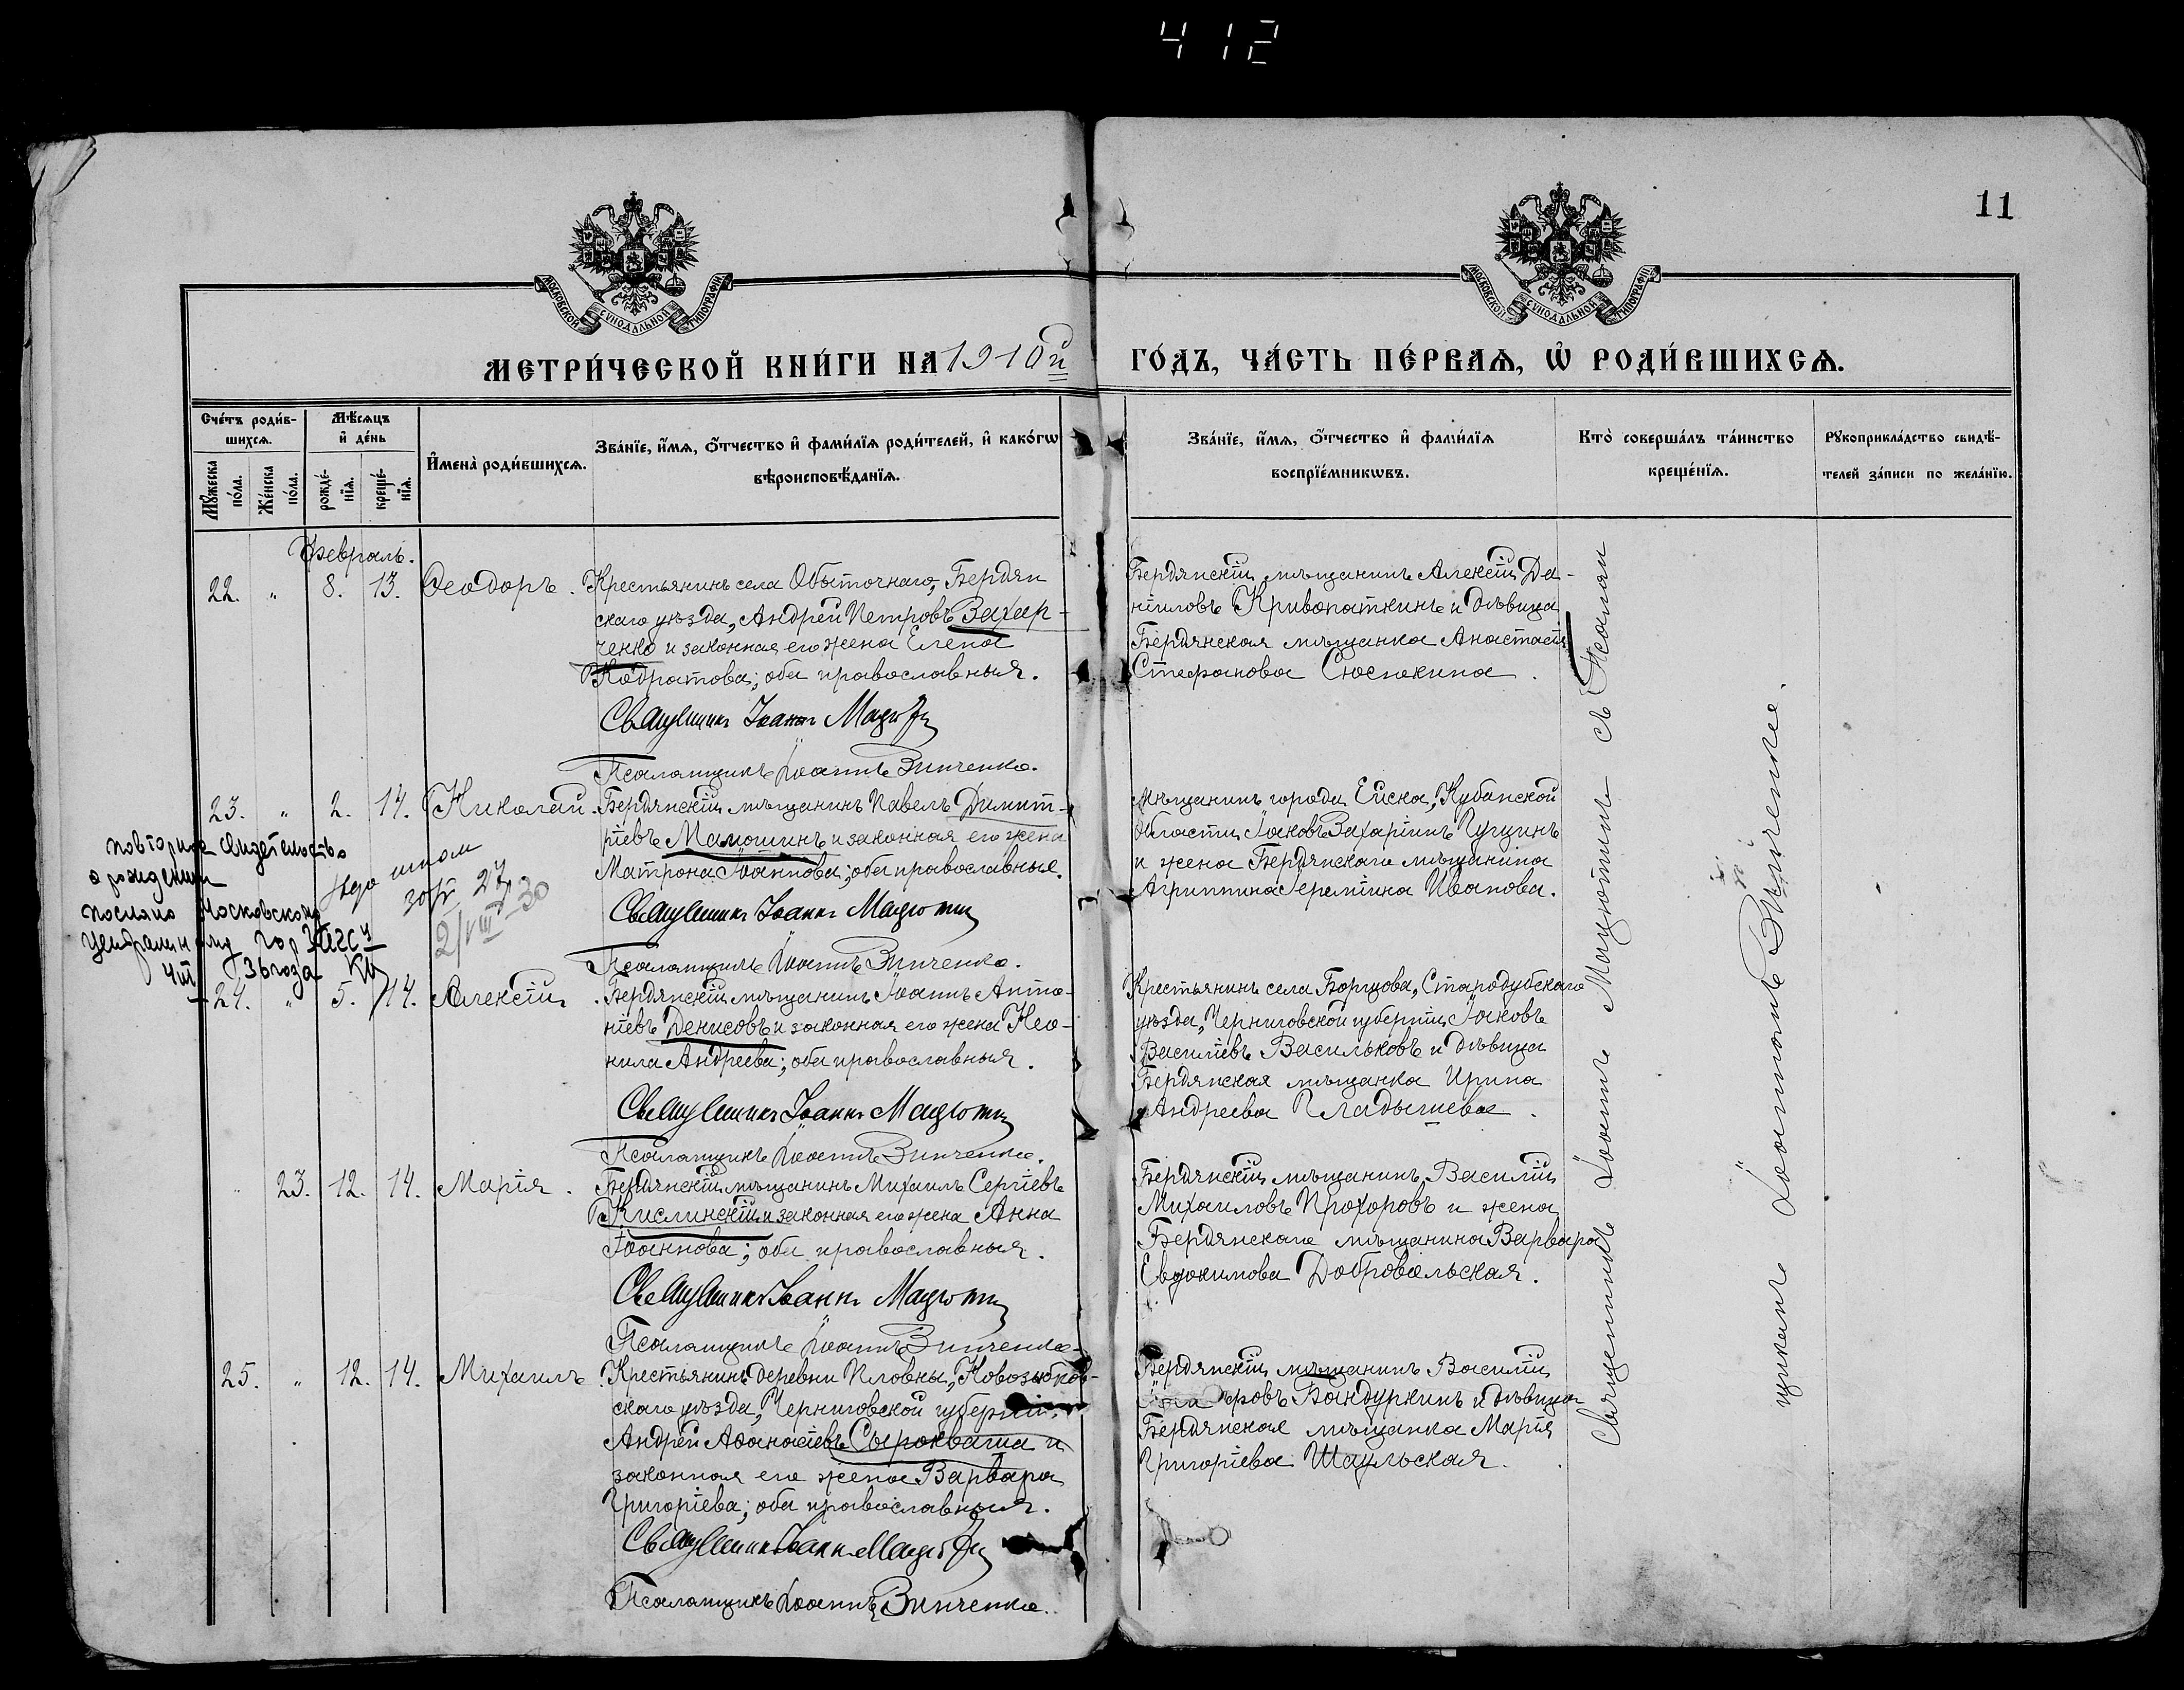 412
11
МОСКОВСКОЙ СУНОДАЛЬНОЙ ТИПОГРАФІИ
МОСКОВСКОЙ СУНОДАЛЬНОЙ ТИПОГРАФІИ
МЕТРИ́ЧЕСКОЙ КНИ́ГИ НА 1910й ГО́ДЪ, ЧА́СТЬ ПЕ́РВАѦ, Ѡ҆ РОДИ́ВШИХСѦ.
Сче́тъ роди́в-
шихсѧ.
Мѣ́сѧцъ
и҆ де́нь
Мꙋ́жеска по́ла.
Же́нска по́ла.
рожде́-нїѧ.
креще́-нїѧ.
И҆мена̀ роди́вшихсѧ.
Зва́нїе, и҆́мѧ, ѻ҆́тчество и҆ фами́лїѧ роди́телей, и҆ како́гѡ
вѣроисповѣ́данїѧ.
Зва́нїе, и҆́мѧ, ѻ҆́тчество и҆ фами́лїѧ
воспрїе́мникѡвъ.
Кто̀ соверша́лъ та́инство
креще́нїѧ.
Рꙋкоприкла́дство свидѣ́-
телей за́писи по жела́нїю.
Февраль.
22. „ 8. 13. Ѳеодоръ. Крестьянинъ села Обыточнаго, Бердян
скаго уѣзда, Андрей Петровъ Захар-
ченко и законная его жена Елена
Кодратова; оба православныя.
Священникъ Іоаннъ Мацютин
Псаломщикъ Іоаннъ Зинченко.
Бердянскій мѣщанинъ Алексій Да-
ніиловъ Кривопаткинъ и дѣвица
Бердянская мѣщанка Анастасія
Стефанова Сюсюкина.
23. „ 2. 14. Николай. Бердянскій мѣщанинъ Павелъ Димит-
ріевъ Мамошинъ и законная его жена
Матрона Іоаннова; оба православные.
Священникъ Іоаннъ Мацютин
Псаломщикъ Іоаннъ Зинченко.
Мѣщанинъ города Ейска, Кубанской
области, Іаковъ Захаріинъ Пугинъ
и жена Бердянскаго мѣщанина
Агриппина Іереміина Иванова.
повторное свидетельство
о рождении
послано Московскому
центральному гор Загсу
36 года
27
2/VIII-30
24. „ 5. 14. Алексій. Бердянскій мѣщанинъ Іоаннъ Анто-
ніевъ Денисовъ и законная его жена Нео-
нила Андреева; оба православныя.
Священникъ Іоаннъ Мацютин
Псаломщикъ Іоаннъ Зинченко.
Крестьянинъ села Борщова, Стародубскаго
уѣзда, Черниговской губерніи, Іаковъ
Василіевъ Васильковъ и дѣвица
Бердянская мѣщанка Ирина
Андреева Гладышева.
„ 23. 12. 14. Марія. Бердянскій мѣщанинъ Михаилъ Сергіевъ
Кислинскій и законная его жена Анна
Іоаннова; оба православныя.
Священникъ Іоаннъ Мацютин
Псаломщикъ Іоаннъ Зинченко.
Бердянскій мѣщанинъ Василій
Михаиловъ Прохоровъ и жена
Бердянскаго мѣщанина Варвара
Евдокимова Добровольская.
25. „ 12. 14. Михаилъ. Крестьянинъ деревни Иловны, Новозыбков-
скаго уѣзда, Черниговской губерніи,
Андрей Аѳанасіевъ Сыроквашa и
законная его жена Варвара
Григоріева; оба православныя.
Священникъ Іоаннъ Мацютин
Псаломщикъ Іоаннъ Зинченко.
Бердянскій мѣщанинъ Василій
Бандуркинъ и дѣвица
Бердянская мѣщанка Марія
Григоріева Шаульская.
Священникъ Іоаннъ Мацютинъ съ Псалом
щикомъ Іоанномъ Зинченко.